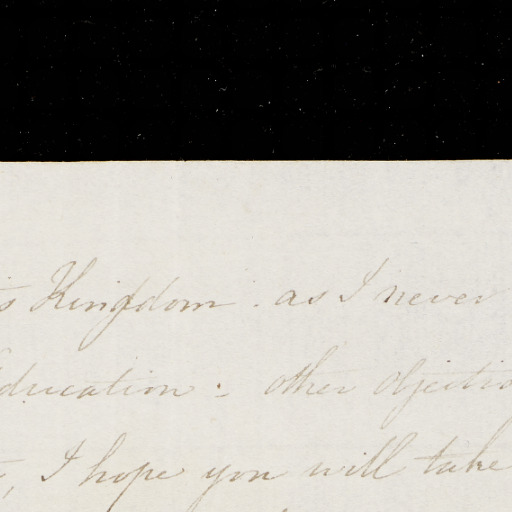 Kingdom. as I never
Education:- other Objectio
, I hope you will take